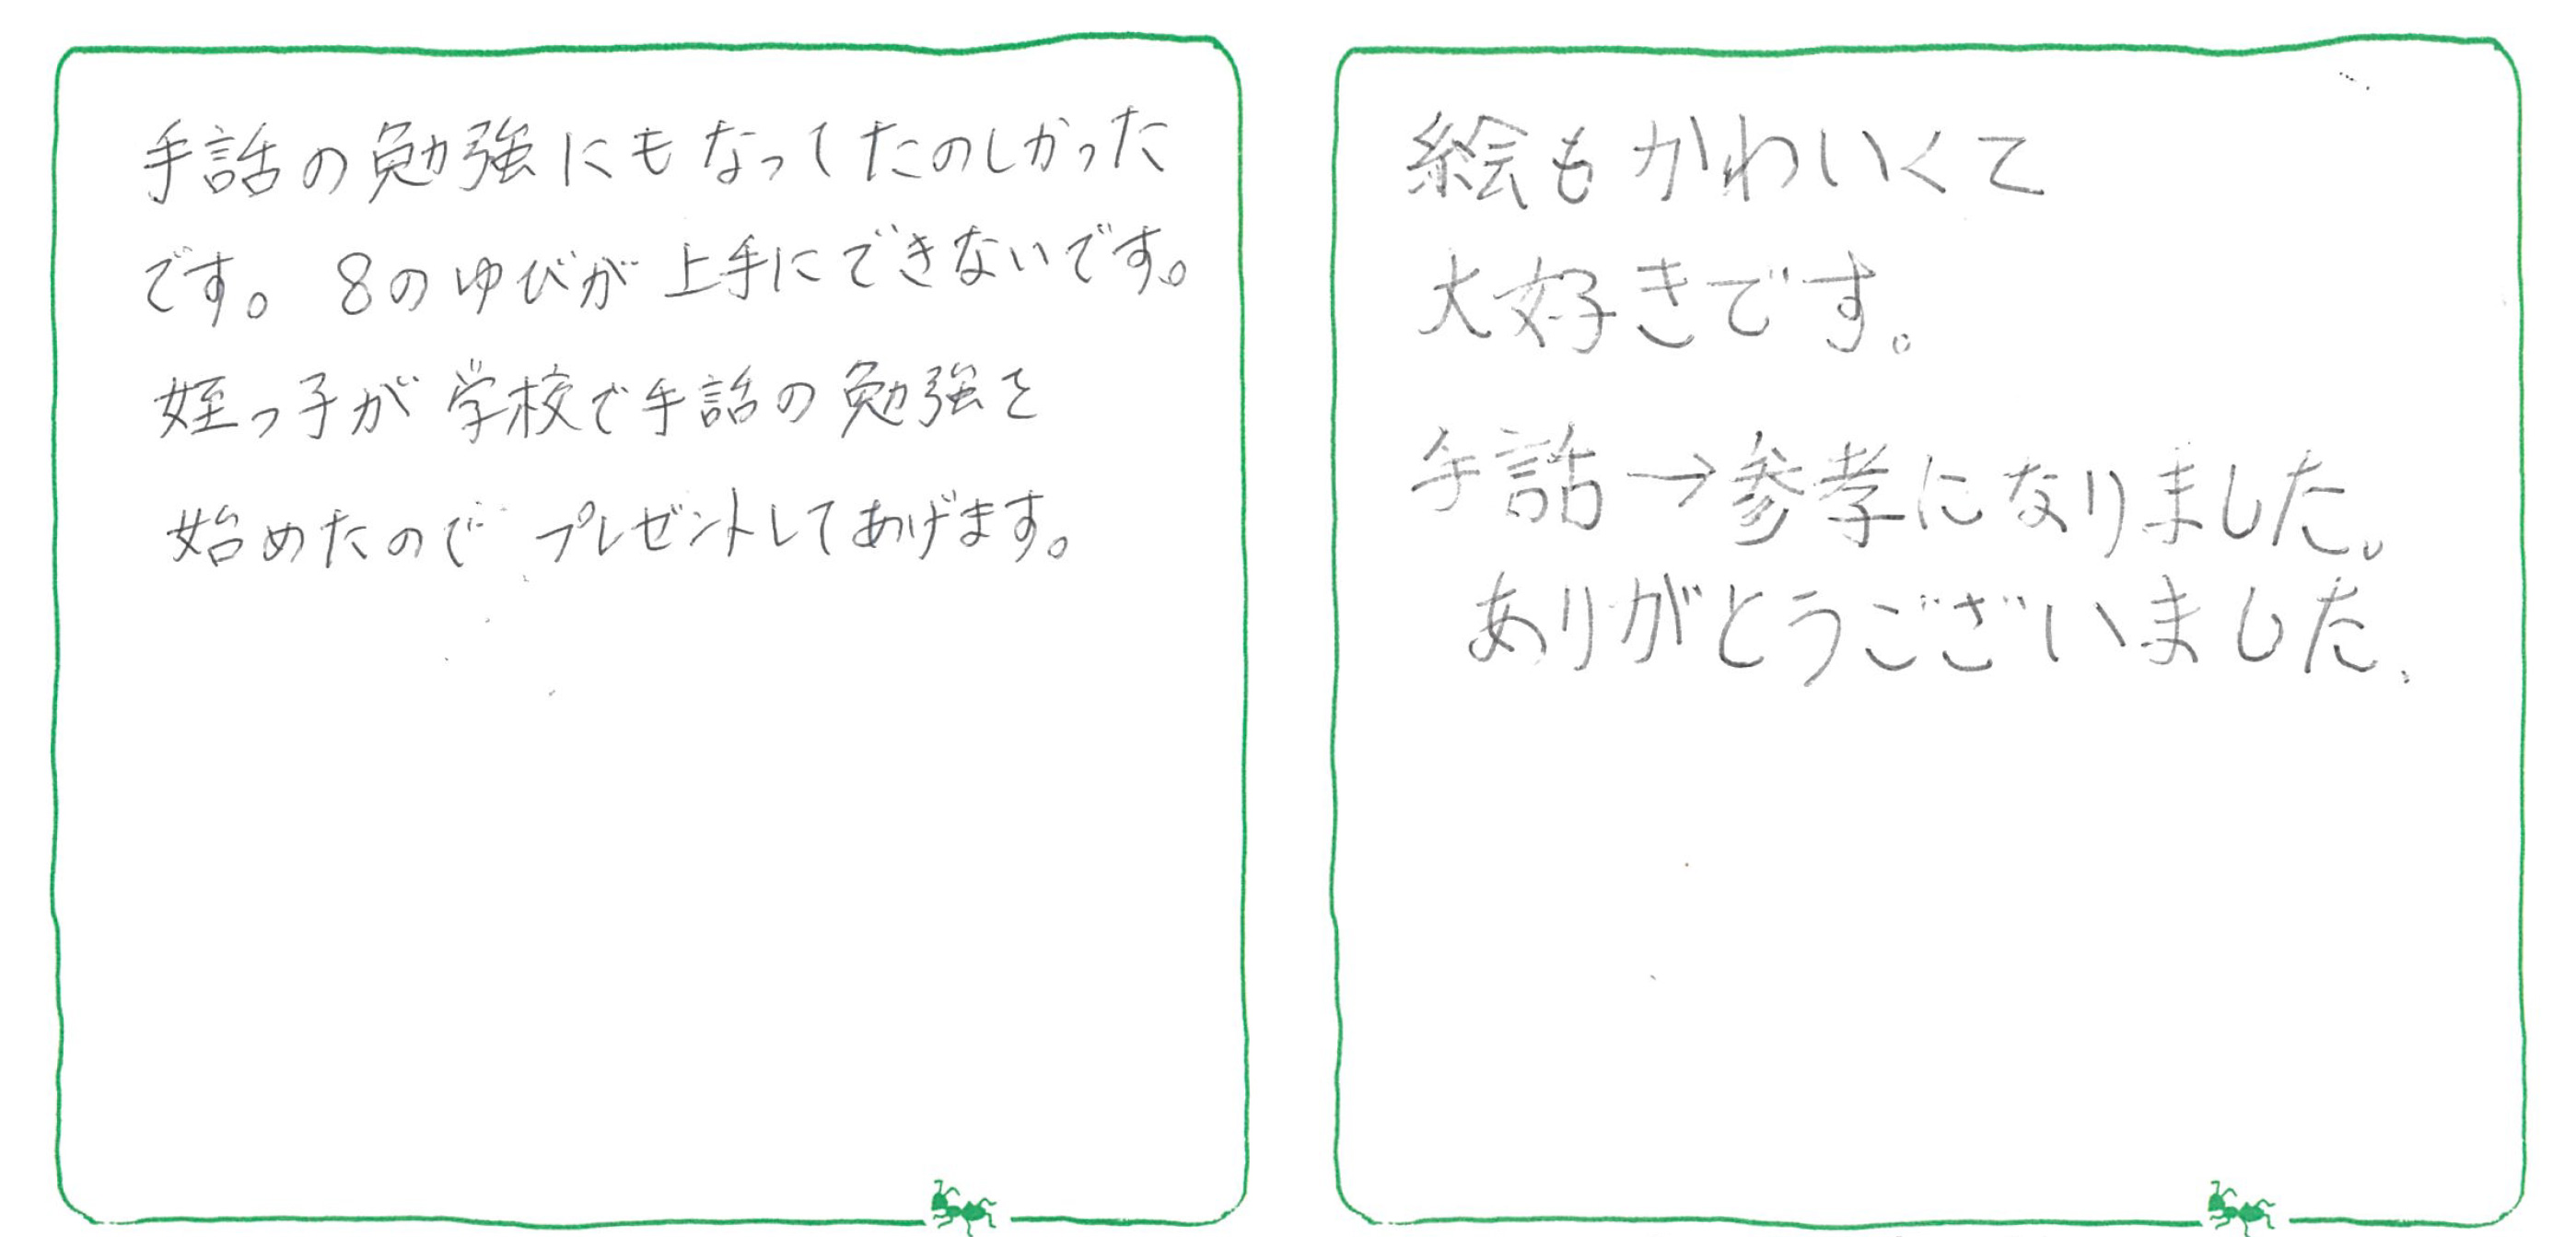 手話の勉強にもなってたのしかった
です。8のゆびが上手にできないです。
姪っ子が学校で手話の勉強を
始めたのでプレゼントしてあげます。
絵もかわいくて
大好きです。
手話→参考になりました。
ありがとうございました。